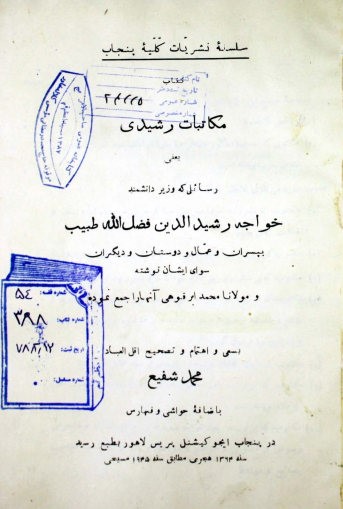 سلسلهٔ نشریّات کلّیهٔ پنجاب
کتاب
مکاتبات رشیدی
یعنی
رسائلی که وزیر دانشمند
خواجه رشید الدین فضل الله طبیب
بپسران و عمّال و دوستان و دیگران
سوای ایشان نوشته
و مولانا محمد ابرقوهی آنهارا جمع نموده
بسعی و اهتمام و تصحیح اقل العباد
محمد شفیع
با ضافهٔ حواشی و فهارس
در پنجاب ایجوکیشنل پریس لاهور بطبع رسید
سنه ۱۳۶۴ هجری مطابق سنه ۱۹۴۵ مسیحی
نام کتاب
تاریخ ثبت دفتر
شماره عمومی
شماره خصوصی
شماره قفسه: ۵٤
شماره کتاب: ۳۹۸
تاریخ ثبت:
شماره مسلسل: